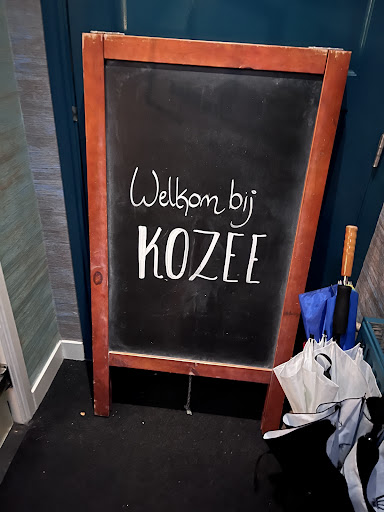 Welkom bij
KOZEE